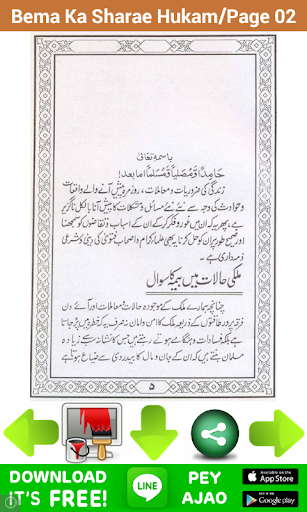 Bema Ka Sharae Hukam/Page 02
باسمہٖ تعالیٰ
حَامِدًا وَّمُصَلِّيًا وَّمُسَلِّمًا امابعد!
زندگی کی ضروریات ومعاملات، روزمرہ پیش آنے والے واقعات
وحوادث کی وجہ سے نئے نئے مسائل وتقاضوں کا پیش آنا بالکل ناگزیر
ہے، پھر یہ کہ ان میں غور وفکر کرکے ان کے اسباب وتقاضوں کو سمجھنا
اور صحیح طور پر ان کو حل کرنا یہ بھی علماء کرام واصحاب فتویٰ کی دینی وشرعی
ذمہ داری ہے۔
ملکی حالات میں بیمہ کا سوال
چنانچہ ہمارے ملک کے موجودہ حالات ومعاملات اور آئے دن
فرقہ پرور طاقتوں کے ذریعہ ملک کا امن وامان نہ صرف یہ کہ خطرہ میں پڑجاتا
ہے بلکہ فسادات وہنگامے ہوتے رہتے ہیں جس کا نشانہ سے زیادہ
مسلمان بنتے ہیں کہ ان کے جان ومال کا بیدردی سے ضیاع ہوتا ہے
۵
DOWNLOAD
IT'S FREE!
LINE
PEY
AJAO
Available on the
App Store
ANDROID APP ON
Google play